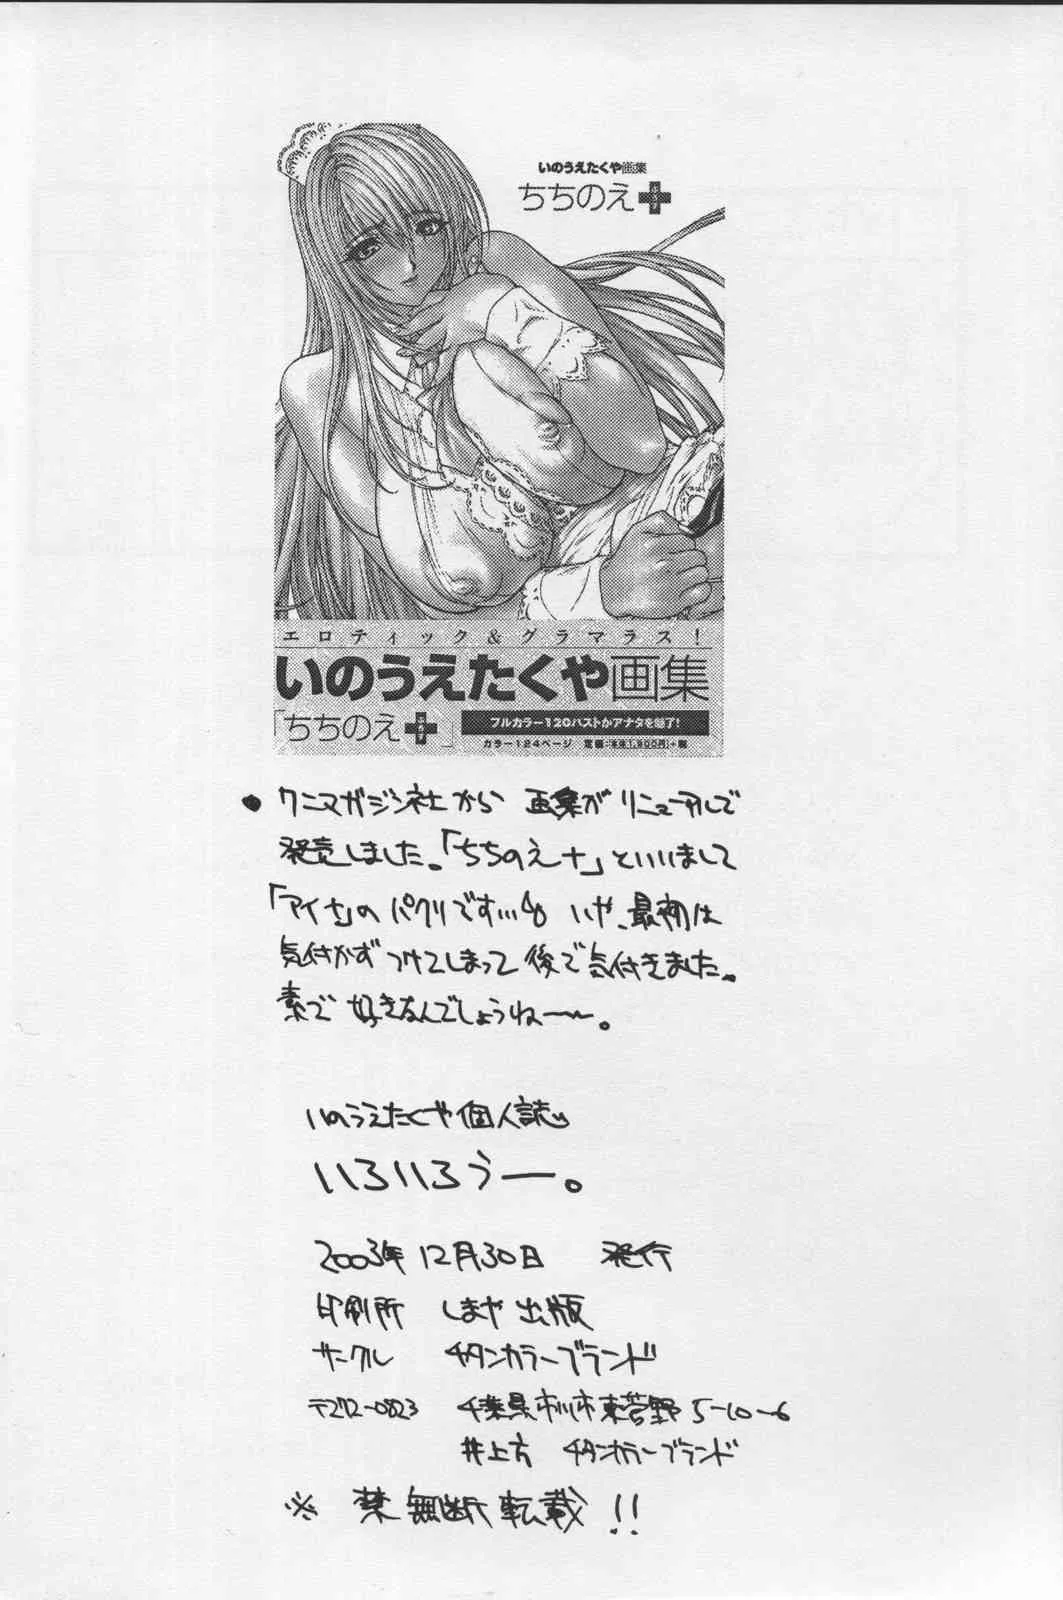 いのうえたくや画集
ちちのえ+
ぷらす
エロティック&グラマラス!
いのうえたくや画集
「ちちのえ+」
ぷらす
フルカラー120バストがアナタを魅了!
カラー124ページ 定価:本体1,900円+税
●ワニマガジン社から画集がリニューアルして
発売しました。「ちちのえ+」といいまして
「アイナ」のパクリです… いや、最初は
気付かずつけてしまって後で気付きました。
素で好きなんでしょうね〜。
いのうえたくや個人誌
いろいろぅー。
2003年12月30日 発行
印刷所 しまや出版
サークル チタンカラーブランド
〒272-0823 千葉県市川市東菅野5-10-6
井上方 チタンカラーブランド
※ 禁無断転載!!